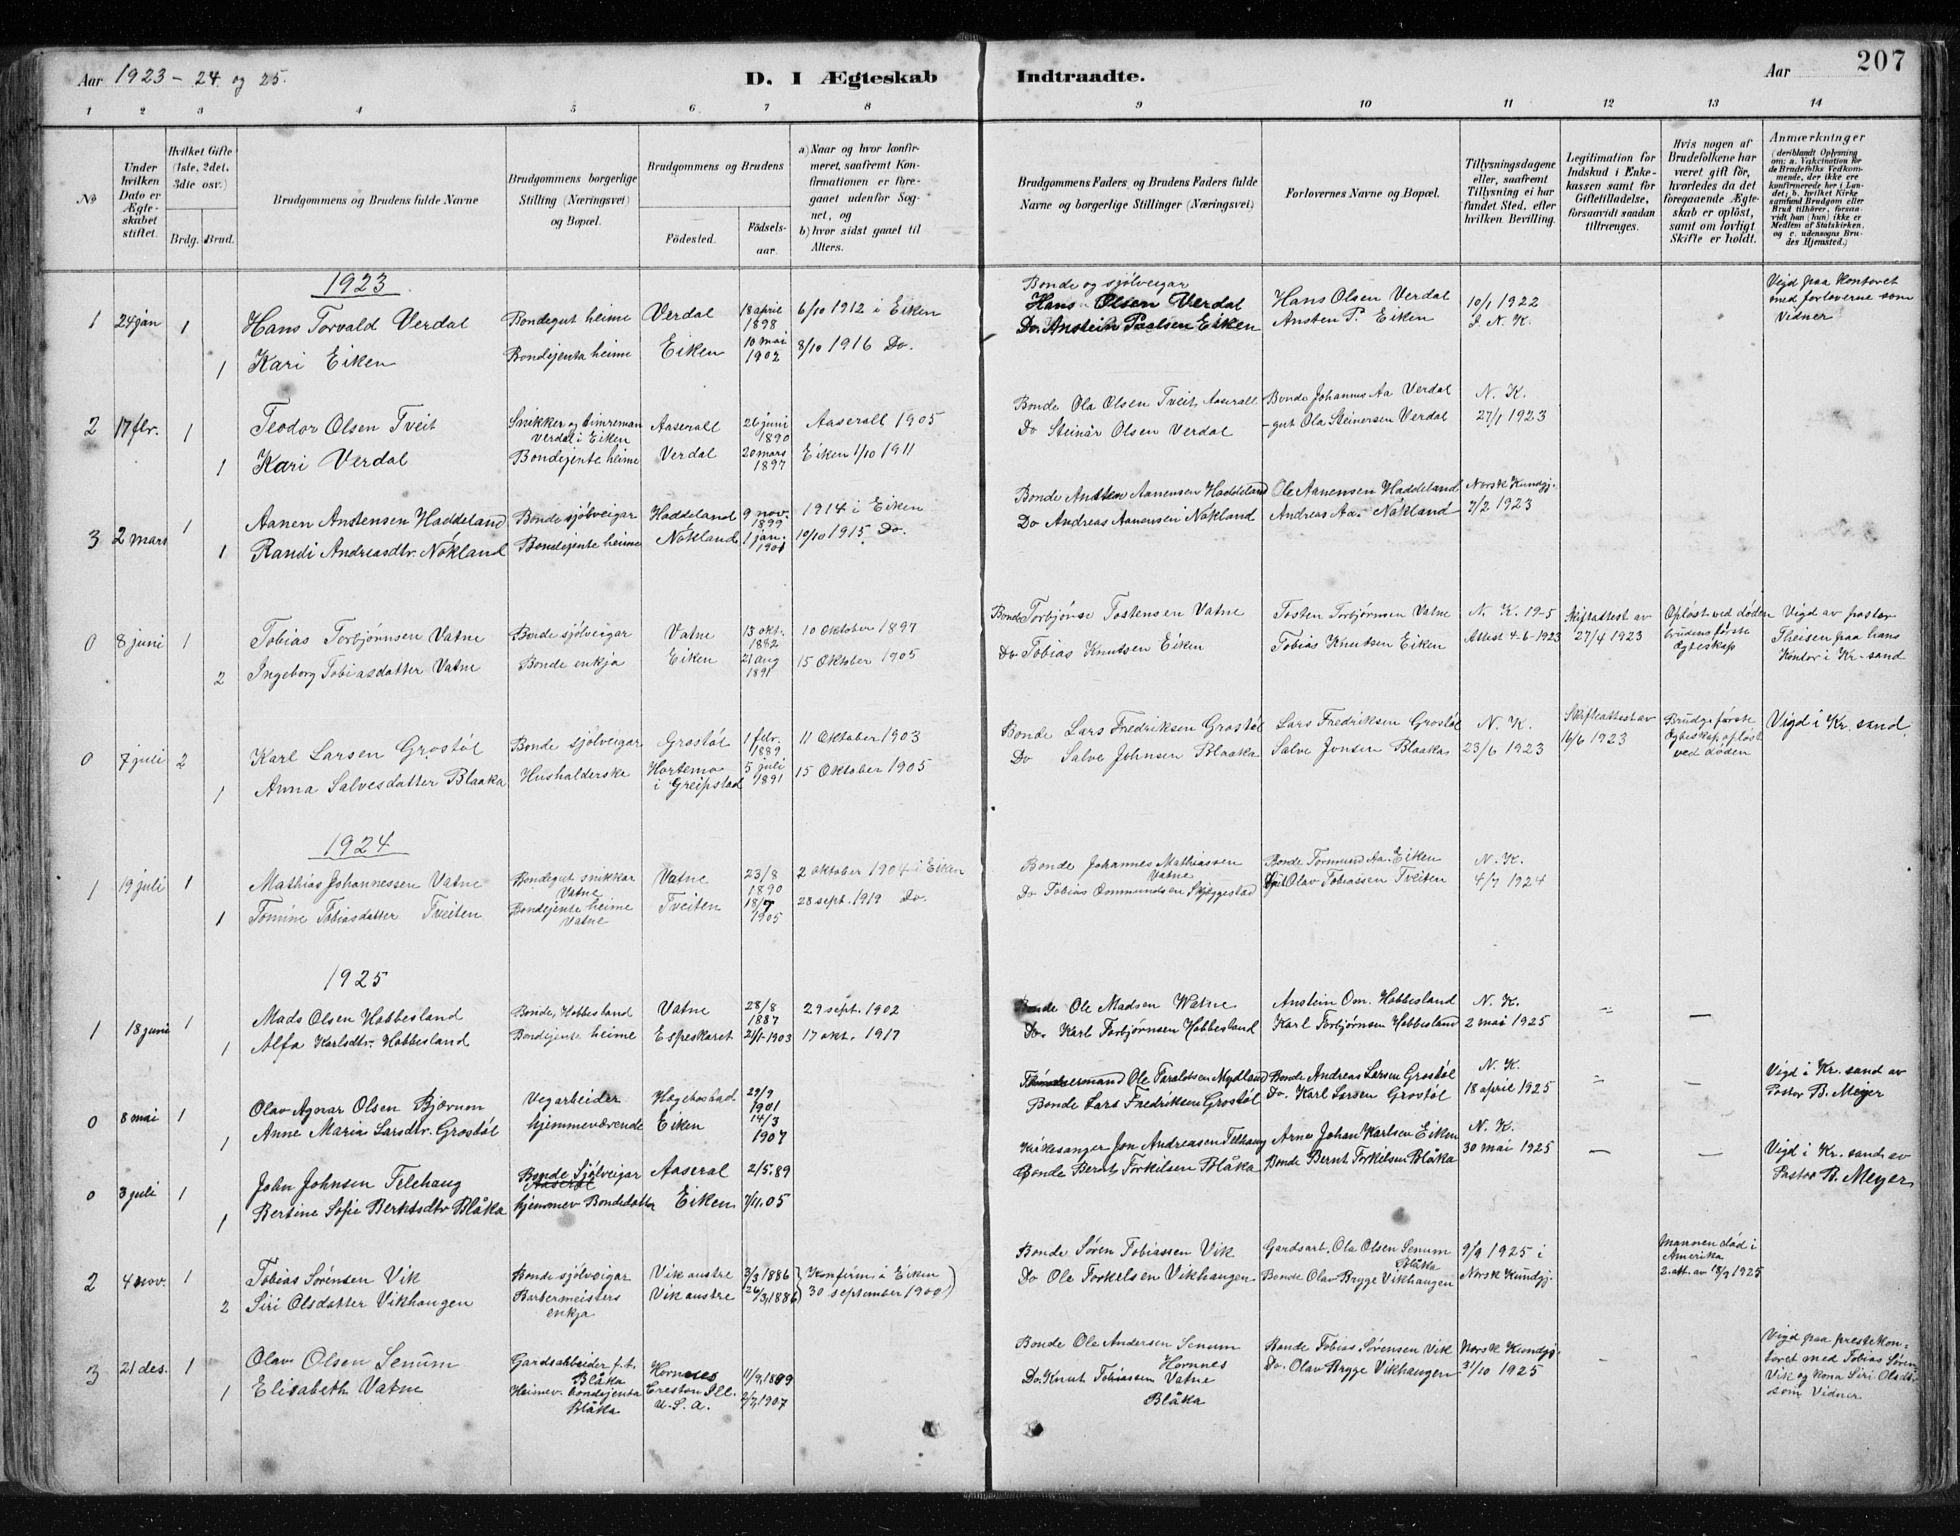 Aar 1923 - 24. og 25.
D. I Ægteskab Indtraadte.
Aar
207
1 2 3 4 5 6 7 8 9 10 11 12 13 14
No
Under hvilken Dato er Ægteskabet stiftet.
Hvilket Gifte (1ste, 2det, 3die osv.)
Brdg. Brud.
Brudgommens og Brudens fulde Navne
Brudgommens borgerlige Stilling (Næringsvei) og Bopæl.
Brudgommens og Brudens
Fødested. Fødsels-aar.
a) Naar og hvor konfirmeret, saafremt Konfirmationen er foregaaet udenfor Sognet, og
b) hvor sidst gaaet til Alters.
Brudgommens Faders og Brudens Faders fulde Navne og borgerlige Stillinger (Næringsvei)
Forlovernes Navne og Bopæl.
Tillysningsdagene eller, saafremt Tillysning ei har fundet Sted, efter hvilken Bevilling.
Legitimation for Indskud i Enkekassen samt for Giftetilladelse, forsaavidt saadan tiltrænges.
Hvis nogen af Brudefolkene har været gift før, hvorledes da det foregaaende Ægteskab er opløst, samt om lovligt Skifte er holdt.
Anmærkninger (deriblandt Oplysning om: a. Vakcination for de Brudefolks Vedkommende, der ikke ere konfirmerede her i Landet; b. hvilket Kirkesamfund Brudgom eller Brud tilhører, forsaavidt han (hun) ikke er Medlem af Statskirken, og c. udensogns Brudes Hjemsted.)
1923
1 24 jan 1 Hans Torvald Verdal Bondegut heime Verdal 18 april 1898 6/10 1912 i Eiken
1 Kari Eiken Bondejenta heime Eiken 10 mai 1902 8/10 1916 Do.
Bonde og sjølveigar
Hans Olsen Verdal Hans Olsen Verdal 10/1 1922
Do. Anstein Paulsen Eiken Ansten P. Eiken I N. K.
Vigd paa Kontoret med forloverne som Vidner
2 17 febr. 1 Teodor Olsen Tveit Snikker og timreman Verdal i Eiken Aaserall 26 juni 1890 Aaserall 1905
1 Kari Verdal Bondejente heime Verdal 20 mars 1897 Eiken 1/10 1911
Bonde Ola Olsen Tveit, Aaserall Bonde Johannes Aa Verdal N. K.
Do Steinar Olsen Verdal - gut Ola Steinersen Verdal 27/1 1923
3 2 mars 1 Aanen Anstensen Haddeland Bonde sjølveigar Haddeland 9 nov. 1899 1914 i Eiken
1 Randi Andreasdtr. Nökland Bondejente heime Nökland 1 jan. 1901 10/10 1915 Do.
Bonde Ansten Aanensen Haddeland Ole Aanensen Haddeland Norsk Kundgj.
Do Andreas Aanensen Nökland Andreas Aa. Nökland 7/2 1923
0 8 juni 1 Tobias Torbjørnsen Vatne Bonde sjölveigar Vatne 13 okt. 1882 10 Oktober 1897
2 Ingeborg Tobiasdatter Vatne Bonde enkja Eiken 21 aug 1891 15 Oktober 1905
Bonde Torbjønse Tostensen Vatne Tosten Torbjørnsen Vatne N. K. 19-5
Do Tobias Knutsen Eiken Tobias Knutsen Eiken Attest 4-6-1923
Skifteattest av 27/4 1923
Opløst ved døden brudens første Ægteskap
Vigd av pastor Theisen paa hans Kontor i Kr-sand
0 7 juli 2 Karl Larsen Grostøl Bonde sjølveigar Grostøl 1 febr. 1889 11 Oktober 1903
1 Anna Salvesdatter Blaaka Husholderske Hortemo i Greipstad 5 juli 1891 15 Oktober 1905
Bonde Lars Fredriksen Grostøl Lars Fredriksen Grostøl N. K.
Do Salve Johnsen Blaaka Salve Jonsen Blaaka 23/6 1923
Skifteattest av 16/6 1923
Brudg. første Ægteskap opløst ved døden
Vigd i Kr. sand.
1924
1 19 juli 1 Mathias Johannessen Vatne Bondegut snikkar Vatne Vatne 23/8 1890 2 oktober 1904 i Eiken
1 Tomine Tobiasdatter Tveiten Bondejente heime Vatne Tveiten 18/7 1905 28 sept. 1919 Do.
Bonde Johannes Mathiassen Vatne Bonde Tormund Aa. Eiken N. K.
Do Tobias Ommundsen Skjeggestad Gut Olav Tobiassen Tveiten 4/7 1924
1925
1 18 juni 1 Mads Olsen Hobbesland Bonde, Hobbesland Vatne 28/8 1887 29 sept. 1902
1 Alfa Karlsdtr. Hobbesland Bondejente heime Espeskaret 21/1-1903 17 okt. 1917
Bonde Ole Madsen Watne Anstein Om. Hobbesland N. K.
Do. Karl Torbjørnsen Hobbesland Karl Torbjørnsen Hobbesland 2 mai 1925
0 8 mai 1 Olav Agnar Olsen Bjærum Vegarbeider Hægebostad 29/9 1901
1 Anne Maria Larsdtr. Grostøl hjemmeværende Eiken 14/3 1907
Ole Taraldsen Mydland Bonde Andreas Larsen Grostøl N. K.
Bonde Lars Fredriksen Grostøl Do. Karl Larsen Grostøl 18 april 1925
Vigd i Kr. sand av Pastor B. Meyer
0 3 juli 1 John Johnsen Felehaug Bonde Sjölveigar Aaseral Aaseral 2/5.89
1 Bertine Sofie Berntsdtr Blåka hjemmev Bondedatter Eiken 7/11.05
Kirkesanger Jon Andreasen Felhaug Arne Johan Karlsen Eiken N. K.
Bonde Bernt Torkilsen Blåka Bonde Bernt Torkilsen Blåka 30 mai 1925
Vigd i Kr. sand av Pastor B. Meyer
2 4 nov. 1 Tobias Sørensen Vik Bonde sjølveigar Vik austre 3/3 1886 Konfirm. i Eiken
2 Siri Olsdatter Vikhaugen Barbermeisters enkja Vik austre 26/3, 1886 30 september 1900
Bonde Søren Tobiassen Vik Gardsarb. Ola Olsen Senum Blåka 9/9 1925 i
Do Ole Torkelsen Vikhaugen Bonde Olav Brygge Vikhaugen Norsk Kundgj.
Mannen død i Amerika
2. att. av 18/9 1925
3 21 des. 1 Olav Olsen Senum Gardsarbeider f.t. Blåka Hornnes 11/9, 1899
1 Elisabeth Vatne Heimev. bondejenta Blåka Creston Ill. U. S. A. 2/7, 1907
Bonde Ole Andersen Senum Hornnes Bonde Tobias Sørensen Vik Norsk Kundgj.
Do. Knut Tobiassen Vatne Blåka Do. Olav Brygge Vikhaugen 31/10 1925
Vigd paa prestekontoret med Tobias Søren Vik og kona Siri Olsdt. som Vidner